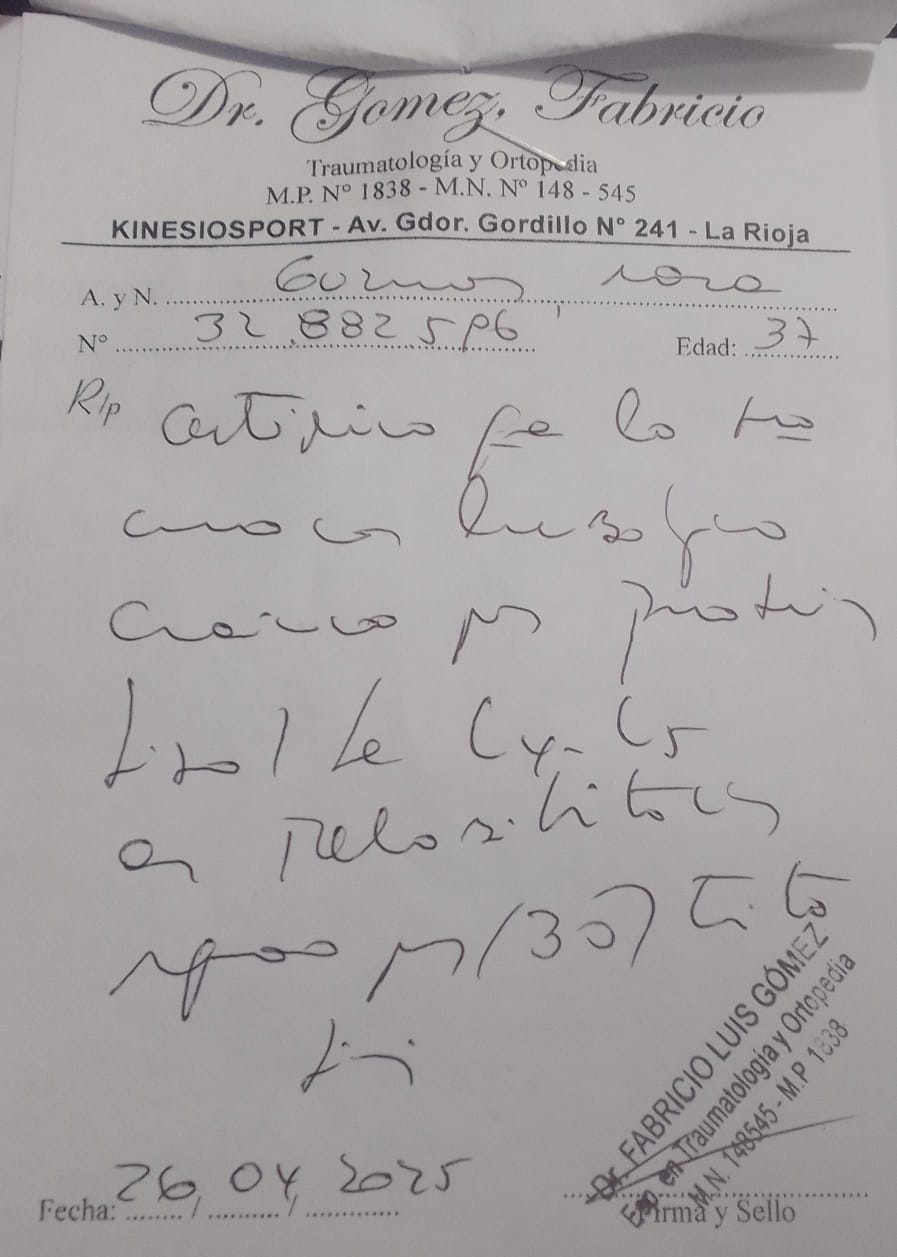 Dr. Gomez, Fabricio
Traumatología y Ortopedia
M.P. N° 1838 - M.N. N° 148 - 545
KINESIOSPORT - Av. Gdor. Gordillo N° 241 - La Rioja
A. y N.
N° 32.882 5
Edad: 37
R/p Certifico que la
cursa con
crónico por
de C4-C5
en Rehabilitación
reposo por (30) Treinta
Días
Fecha: 26/04/2025
Dr. FABRICIO LUIS GÓMEZ
Esp. en Traumatología y Ortopedia
M.N. 148545 - M.P 1838
Firma y Sello